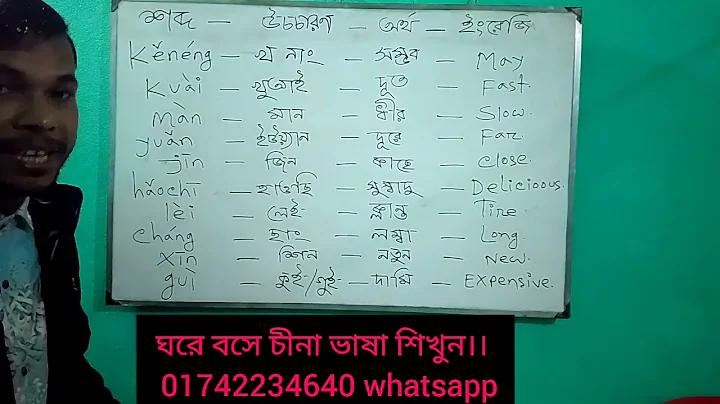 শব্দ – উচ্চারণ – অর্থ – ইংরেজি
Kěnéng – খ নাং – সম্ভব – May
Kuài – খুআই – দ্রুত – Fast.
màn – মান – ধীর – Slow.
yuǎn – ইউয়্যান – দূরে – Far.
jīn – জিন – কাছে – close.
hǎochī – হাওছি – সুস্বাদু – Delicioous.
lèi – লেই – ক্লান্ত – Tire.
cháng – ছাং – লম্বা – Long
xīn – শিন – নতুন – New.
guì – কুই/গুই – দামি – Expensive.
ঘরে বসে চীনা ভাষা শিখুন।।
01742234640 whatsapp